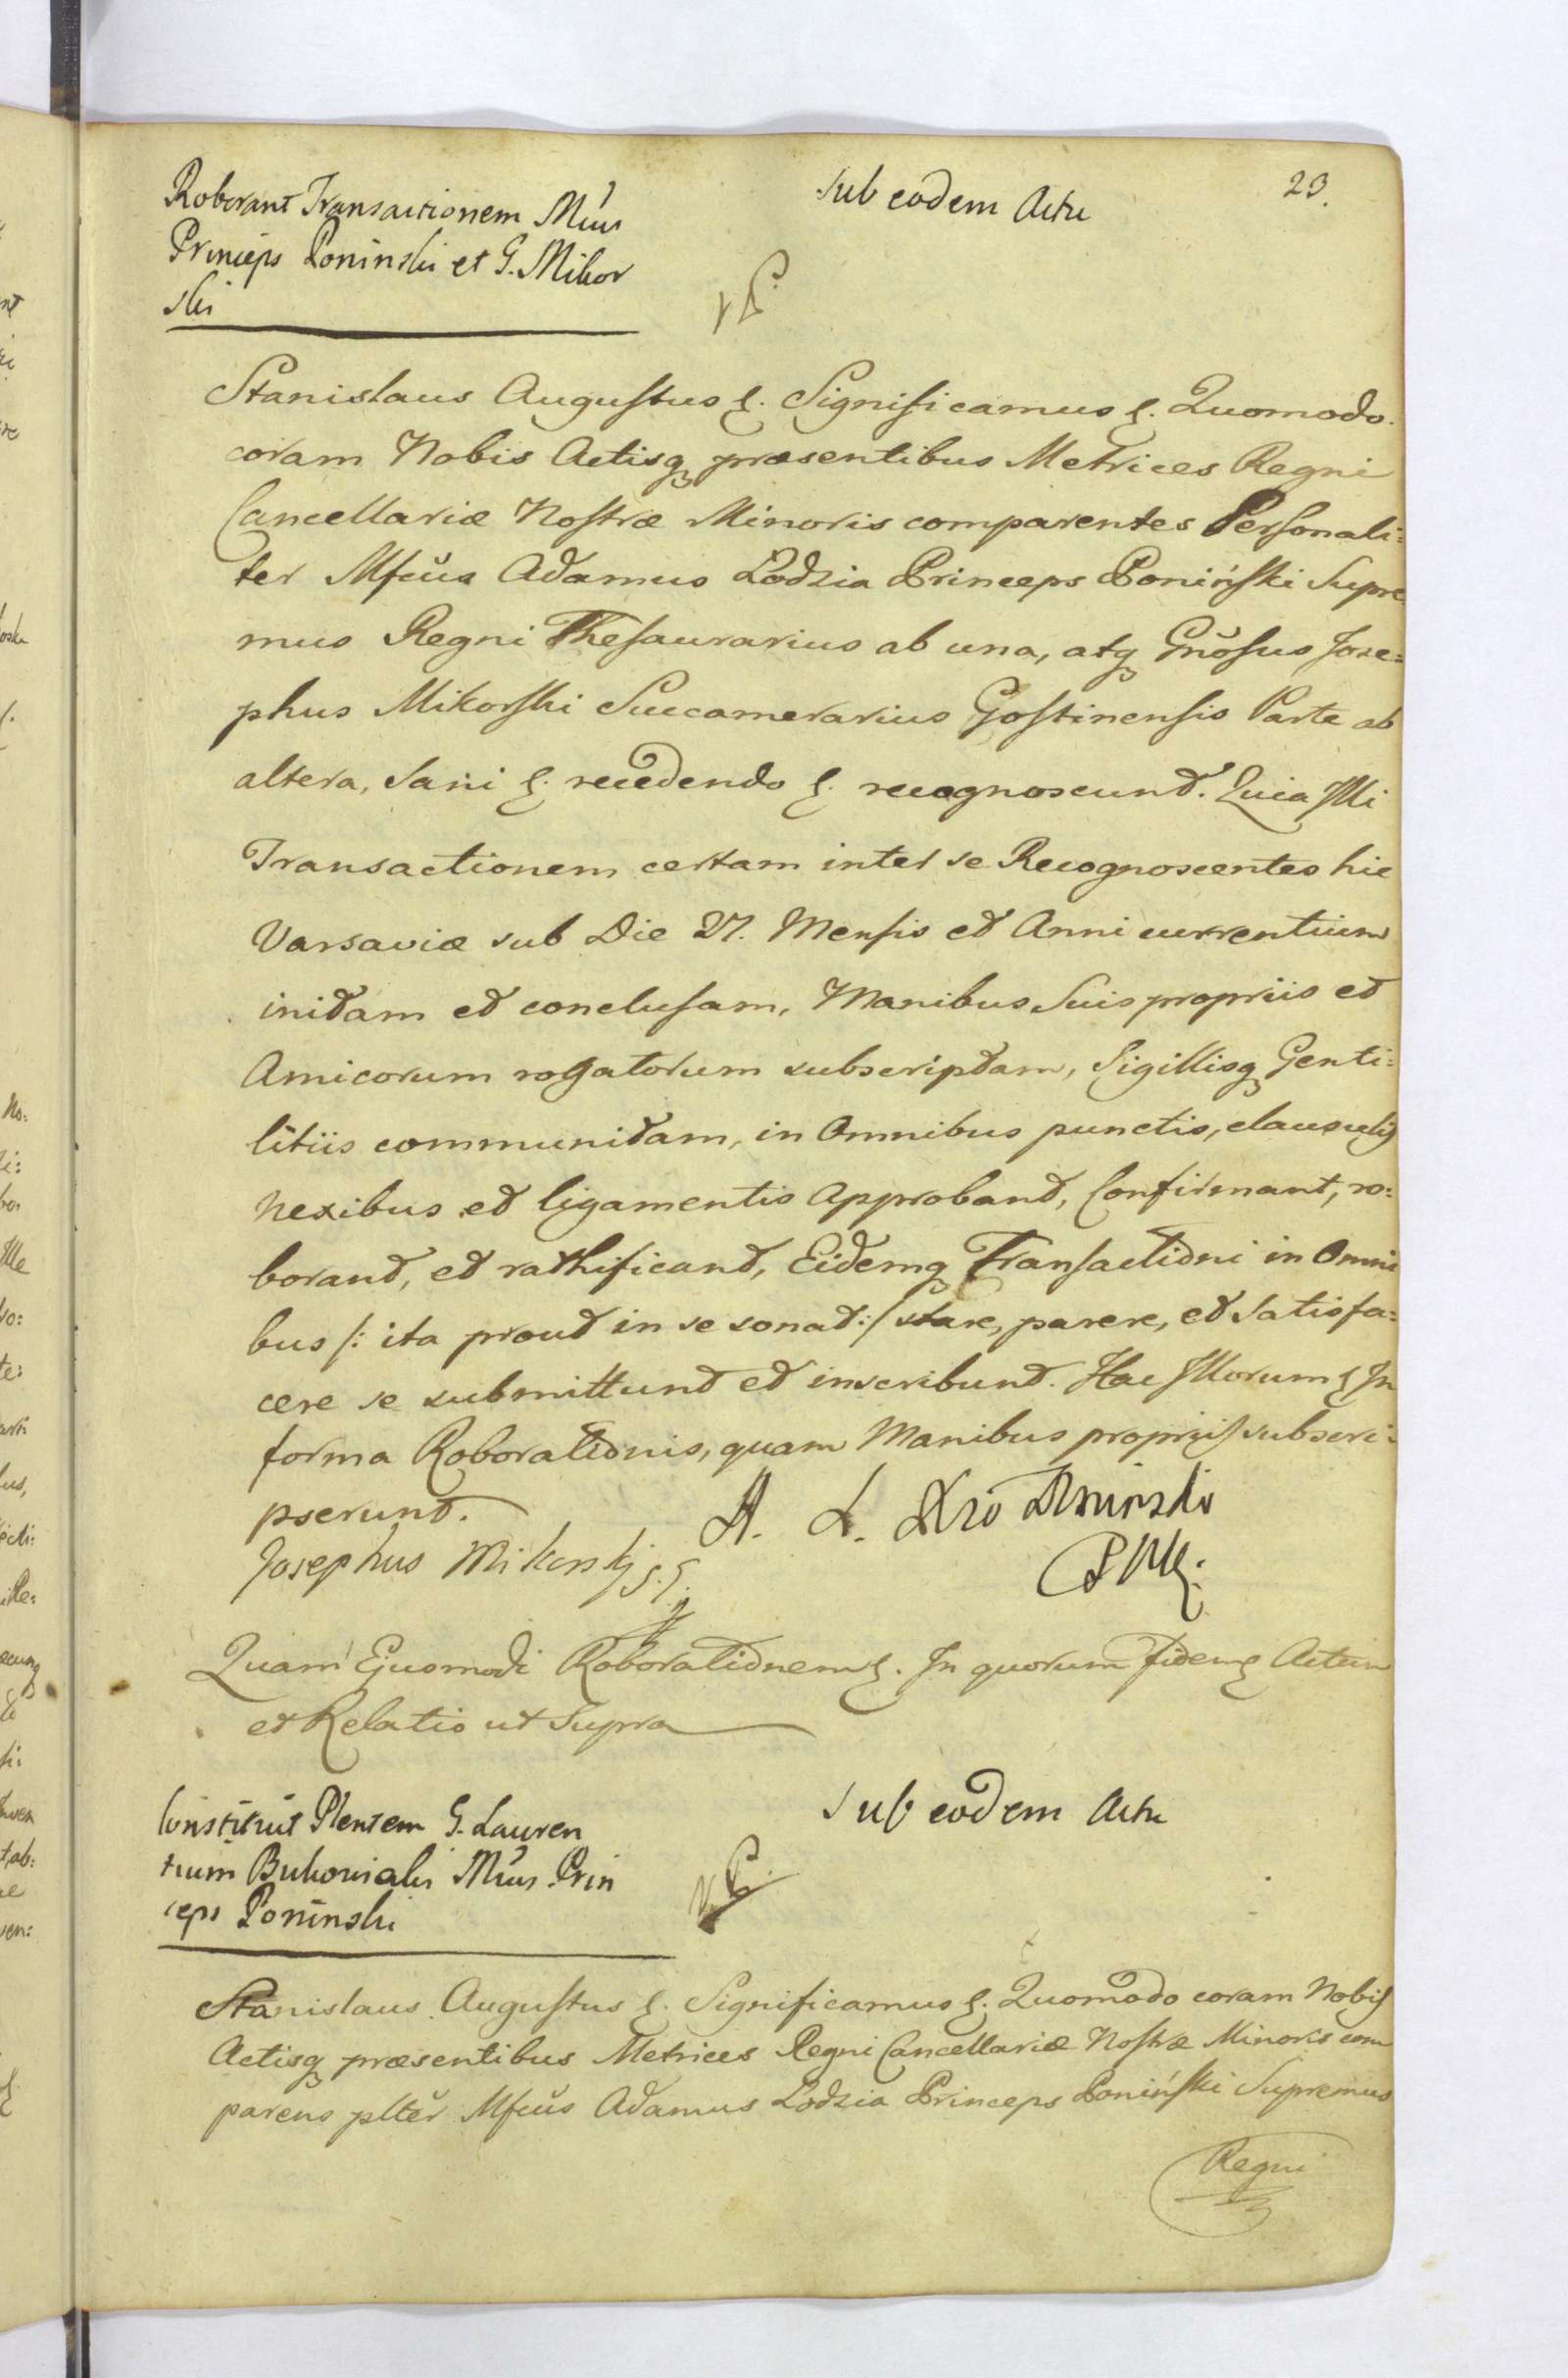 23.
Roborant Transactionem Mcus
Princeps Poninski et G. Mikor
ski
Sub eodem Actu
Stanislaus Augustus &. Significamus &. Quomodo
coram Nobis Actisq præsentibus Metrices Regni
Cancellariæ Nostræ Minoris comparentes Personali=
ter Mfcus Adamus Lodzia Princeps Poniński Supre
mus Regni Thesaurarius ab una, atq Gnosus Jose=
phus Mikorski Succamerarius Gostinensis Parte ab
altera, Sani &. recedendo &. recognoscunt. Quia Illi
Transactionem certam inter se Recognoscentes hic
Varsaviæ sub Die 27. Mensis et Anni currentium
initam et conclusam, Manibus Suis propriis et
Amicorum rogatorum subscriptam, Sigillisq Genti=
litiis communitam, in Omnibus punctis, clausulis
nexibus et ligamentis Approbant, Confirmant, ro=
borant, et rathificant, Eidemq Transactioni in Omni
bus /: ita prout in se sonat :/ stare, parere, et Satisfa=
cere se submittunt et inscribunt. Hac Illorum & In
forma Roborationis, quam Manibus propriis subscri=
pserunt.
A. L. Xże Poninski
Josephus Mikorskj
Quam Ejusmodi Roborationem &. In quorum fidem & Actum
et Relatio ut Supra
Constituit Plentem G. Lauren
tium Bukowiski Mcus Prin
ceps Poninski
Sub eodem Actu
Stanislaus Augustus &. Significamus &. Quomodo coram Nobis
Actisq præsentibus Metrices Regni Cancellariæ Nostræ Minoris com
parens plter Mfcus Adamus Lodzia Princeps Poniński Supremus
Regni